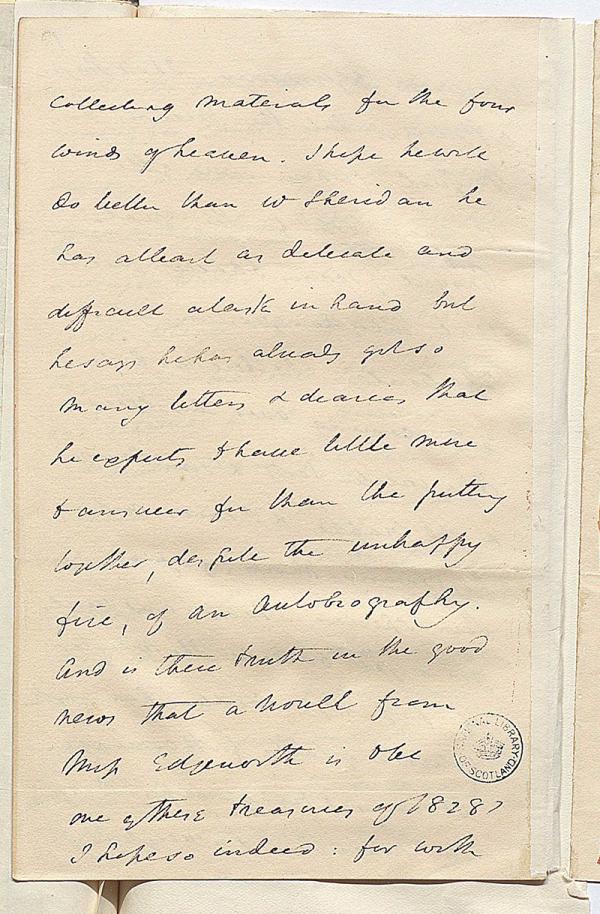 collecting materials fm the four
winds of heaven. I hope he will
do better than w Sheridan he
has atleast as delicate and
difficult a task in hand but
he says he has already got so
many letters & diaries that
he expects to have little more
to answer for than the putting
together, despite the unhappy
fire, of an autobiography.
And is there truth in the good
news that a Novell from
Miss Edgeworth is to be
one of these treasures of 1828?
I hope so indeed: for with
NATIONAL LIBRARY
OF SCOTLAND